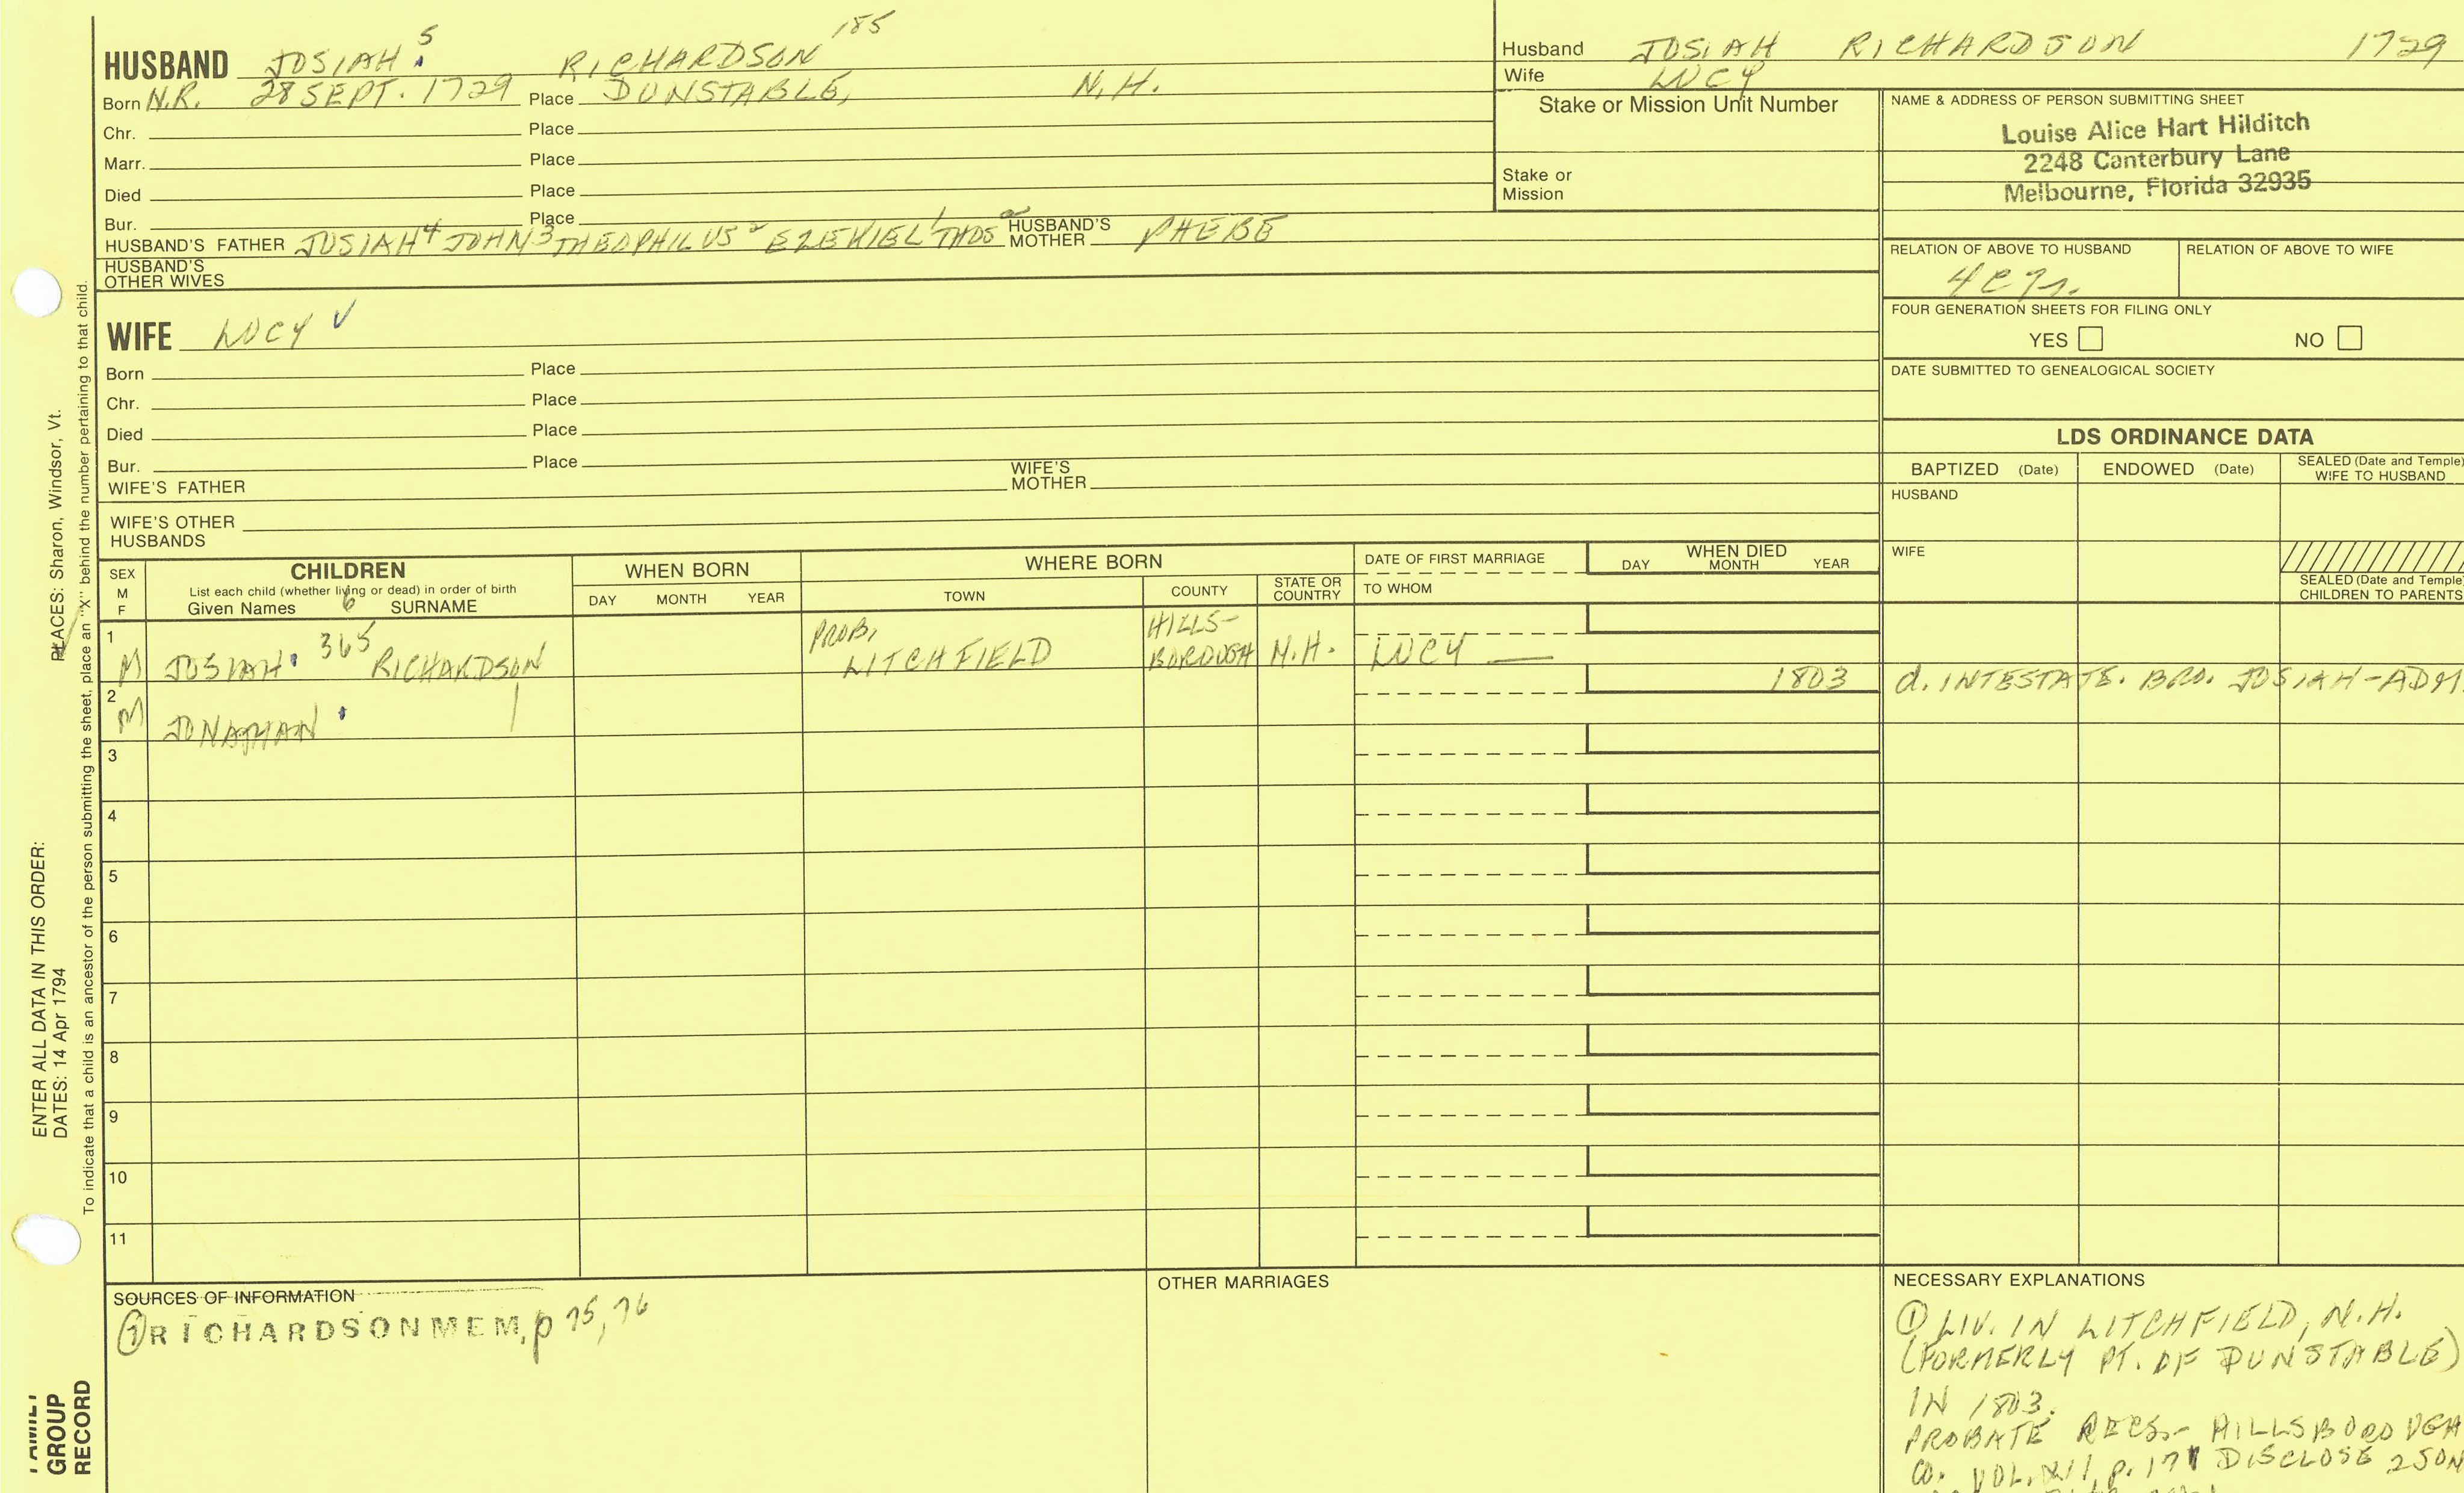 HUSBAND JOSIAH 5 RICHARDSON 185
Born N.R. 28 SEPT. 1729 Place DUNSTABLE, N.H.
Chr. Place
Marr. Place
Died Place
Bur. Place
HUSBAND'S FATHER JOSIAH 4 JOHN 3 THEOPHILUS 2 EZEKIEL 1 THOS a HUSBAND'S MOTHER PHEBE
HUSBAND'S OTHER WIVES
WIFE LUCY √
Born Place
Chr. Place
Died Place
Bur. Place
WIFE'S FATHER WIFE'S MOTHER
WIFE'S OTHER HUSBANDS
Husband JOSIAH RICHARDSON 1729
Wife LUCY
Stake or Mission Unit Number
Stake or Mission
NAME & ADDRESS OF PERSON SUBMITTING SHEET
Louise Alice Hart Hilditch
2248 Canterbury Lane
Melbourne, Florida 32935
RELATION OF ABOVE TO HUSBAND RELATION OF ABOVE TO WIFE
FOUR GENERATION SHEETS FOR FILING ONLY
YES NO
DATE SUBMITTED TO GENEALOGICAL SOCIETY
LDS ORDINANCE DATA
BAPTIZED (Date) ENDOWED (Date) SEALED (Date and Temple) WIFE TO HUSBAND
HUSBAND
WIFE
SEALED (Date and Temple) CHILDREN TO PARENTS
SEX M F CHILDREN WHEN BORN WHERE BORN DATE OF FIRST MARRIAGE WHEN DIED
List each child (whether living or dead) in order of birth
Given Names 6 SURNAME DAY MONTH YEAR TOWN COUNTY STATE OR COUNTRY TO WHOM DAY MONTH YEAR
1 M JOSIAH 365 RICHARDSON PROB. LITCHFIELD HILLS-BOROUGH N.H. LUCY —
2 M JONATHAN 1803 d. INTESTATE. BRO. JOSIAH-ADM
3
4
5
6
7
8
9
10
11
SOURCES OF INFORMATION
① RICHARDSONMEM, p 75, 76
OTHER MARRIAGES
NECESSARY EXPLANATIONS
① LIV. IN LITCHFIELD, N.H.
(FORMERLY PT. OF DUNSTABLE)
IN 1803.
PROBATE RECS.- HILLSBOROUGH
CO. VOL. p. 171 DISCLOSE 2 SON
PLACES: Sharon, Windsor, Vt.
ENTER ALL DATA IN THIS ORDER:
DATES: 14 Apr 1794
To indicate that a child is an ancestor of the person submitting the sheet, place an "X" behind the number pertaining to that child.
FAMILY
GROUP
RECORD